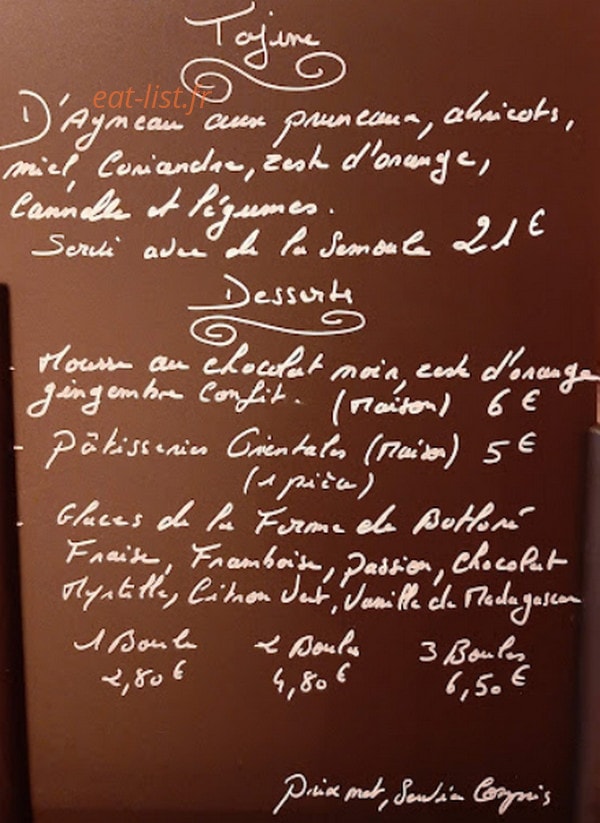 Tajine
eat-list.fr
D'Agneau aux pruneaux, abricots,
miel, Coriandre, zeste d'orange,
Cannelle et légumes.
Servi avec de la Semoule 21€
Desserts
- Mousse au chocolat noir, zeste d'orange
gingembre confit. (Maison) 6€
- pâtisseries Orientales (Maison) 5€
(1 pièce)
- Glaces de la Ferme de
Fraise, Framboise, passion, Chocolat
Myrtille, Citron Vert, Vanille de Madagascar
1 Boule 2 Boules 3 Boules
2,80€ 4,80€ 6,50€
Prix net, Service Compris